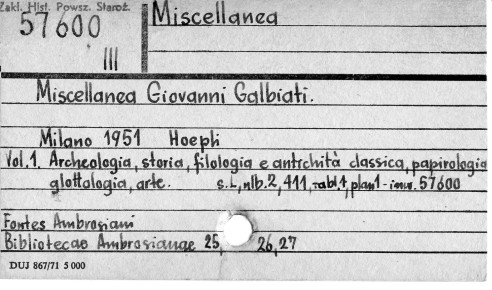 Zakł. Hist. Powsz. Staroż.
57600
III
Miscellanea
Miscellanea Giovanni Galbiati.
Milano 1951 Hoepli
Vol.1. Archeologia, storia, filologia e antichità classica, papirologia
glottologia, arte. s. L, nlb. 2, 411, tabl. 1, plan 1 - inw. 57600
Fontes Ambrosiani
Bibliotecae Ambrosianae 25, 26, 27
DUJ 867/71 5 000